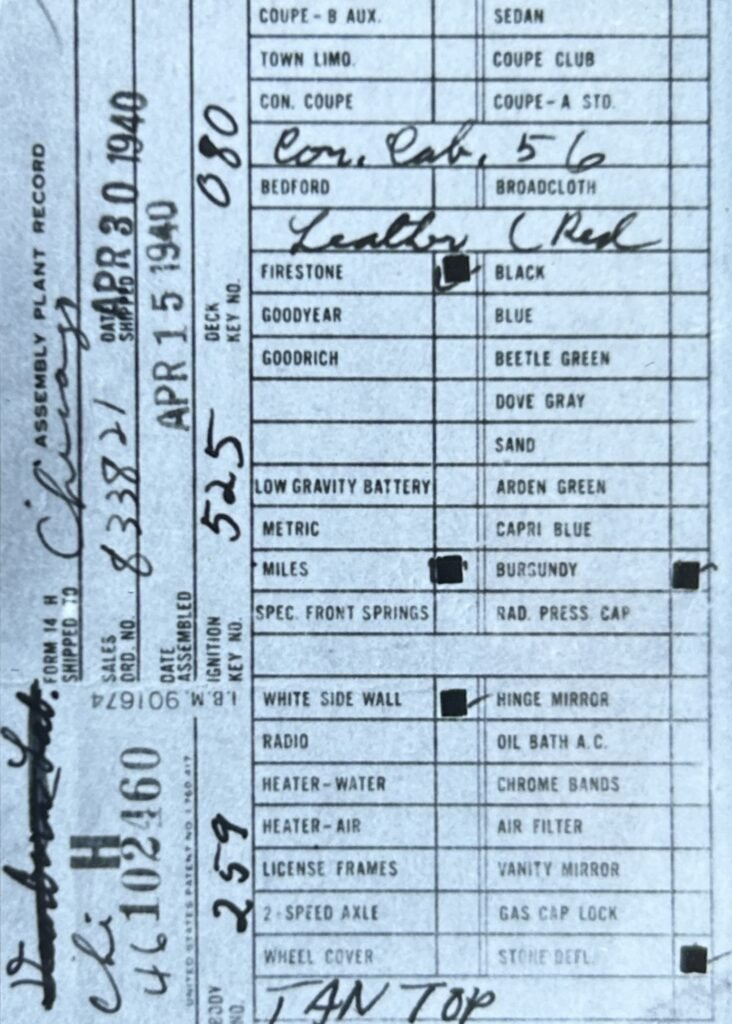 FORM 14 H ASSEMBLY PLANT RECORD
SHIPPED TO Chicago
SALES ORD. NO. 833821 DATE SHIPPED APR 30 1940
DATE ASSEMBLED APR 15 1940
IGNITION KEY NO. 525 DECK KEY NO. 080
I.B.M. 901674
Chi H
46102460
UNITED STATES PATENT NO. 1,780,417
BODY NO. 259
COUPE-B AUX. SEDAN
TOWN LIMO. COUPE CLUB
CON. COUPE COUPE-A STD.
Con. Cab. 56
BEDFORD BROADCLOTH
Leather (Red
FIRESTONE BLACK
GOODYEAR BLUE
GOODRICH BEETLE GREEN
DOVE GRAY
SAND
LOW GRAVITY BATTERY ARDEN GREEN
METRIC CAPRI BLUE
MILES BURGUNDY
SPEC. FRONT SPRINGS RAD. PRESS. CAP
WHITE SIDE WALL HINGE MIRROR
RADIO OIL BATH A.C.
HEATER-WATER CHROME BANDS
HEATER-AIR AIR FILTER
LICENSE FRAMES VANITY MIRROR
2-SPEED AXLE GAS CAP LOCK
WHEEL COVER STONE DEFL.
TAN TOP